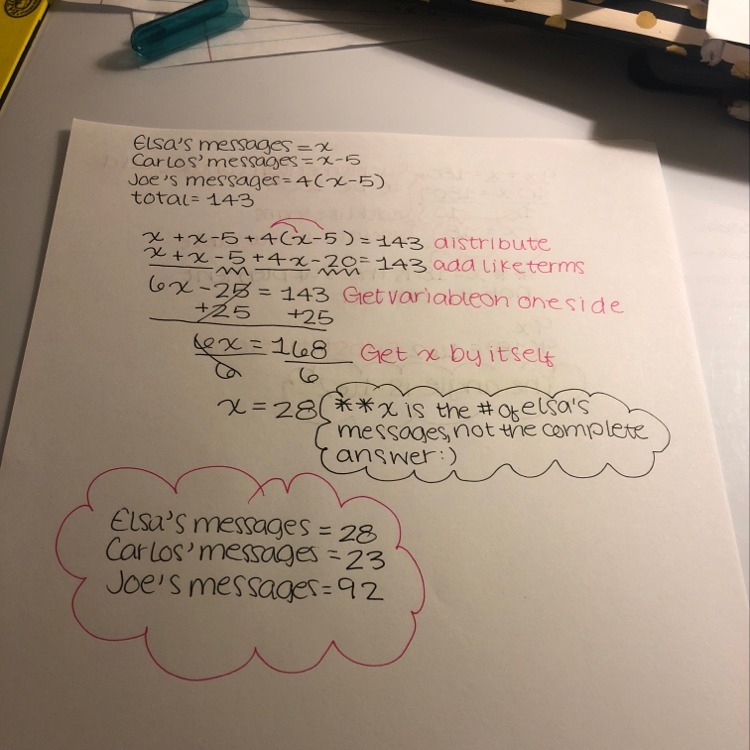 Elsa's messages = x
Carlos' messages = x-5
Joe's messages = 4(x-5)
total = 143
x + x - 5 + 4(x-5) = 143 distribute
x + x - 5 + 4x - 20 = 143 add like terms
6x - 25 = 143 Get variable on one side
+25 +25
6x = 168 Get x by itself
6 6
x = 28 **x is the # of elsa's
messages, not the complete
answer :)
Elsa's messages = 28
Carlos' messages = 23
Joe's messages = 92